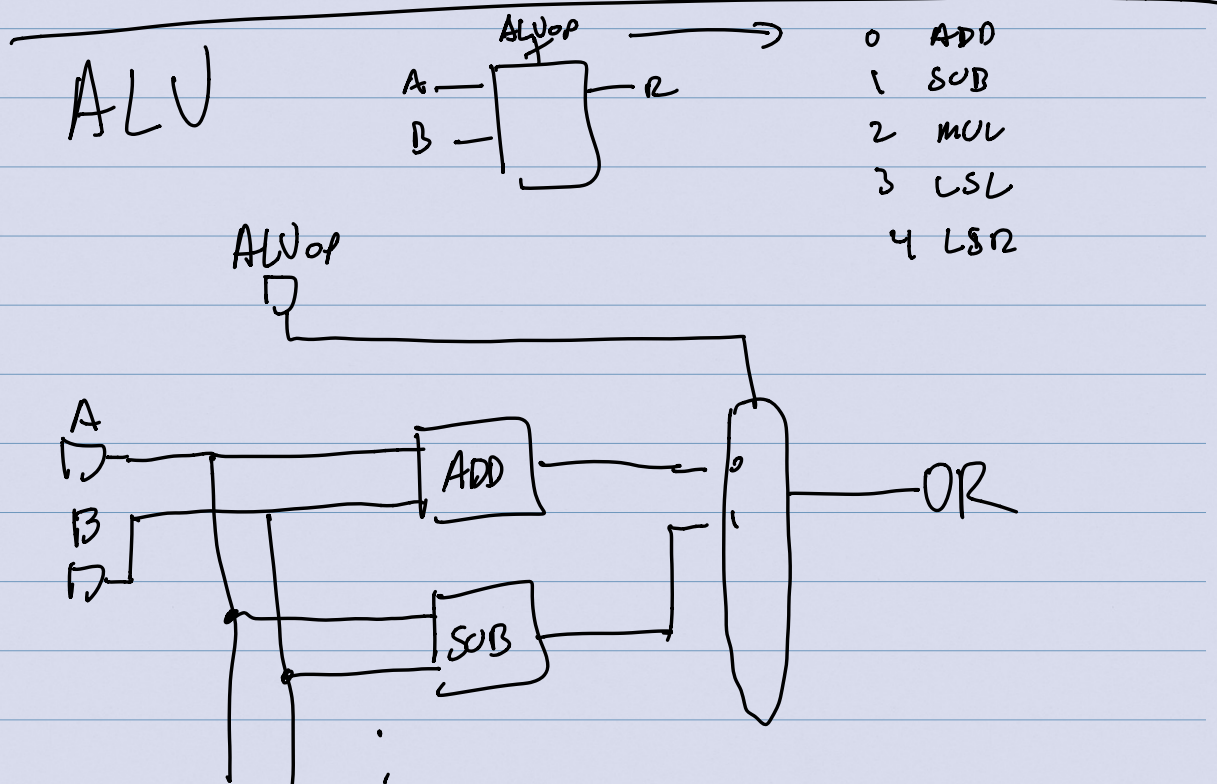 ALU
ALUop
A
B
R
0 ADD
1 SUB
2 MUL
3 LSL
4 LSR
ALUop
A
B
ADD
SUB
0
1
OR